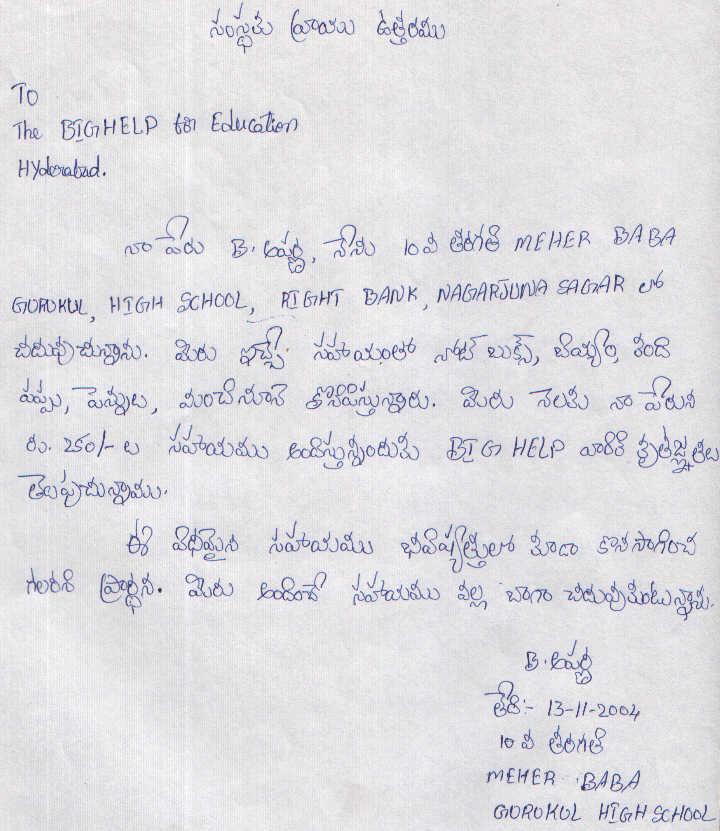 సంస్థకు వ్రాయు ఉత్తరము
TO
The BIGHELP for Education
Hyderabad.
నా పేరు B. అపర్ణ, నేను 10వ తరగతి MEHER BABA
GURUKUL, HIGH SCHOOL, RIGHT BANK, NAGARJUNA SAGAR లో
చదువుచున్నాను. మీరు ఇచ్చే సహాయంతో నోట్ బుక్స్, బియ్యం, కంది
పప్పు, పెన్నుల, మంచినూనె కొనిపిస్తున్నారు. మీరు నెలకు నా పేరున
రు. 250/- ల సహాయము అందిస్తున్నందుకు BIG HELP వారికి కృతజ్ఞతలు
తెలుపుచున్నాము.
ఈ విధమైన సహాయము భవిష్యత్తులో కూడా కొనసాగించ
గలరని ప్రార్థన. మీరు అందించే సహాయము వల్ల బాగా చదువుకుంటున్నాను.
B. అపర్ణ
తేది:- 13-11-2004
10 వ తరగతి
MEHER BABA
GURUKUL HIGH SCHOOL